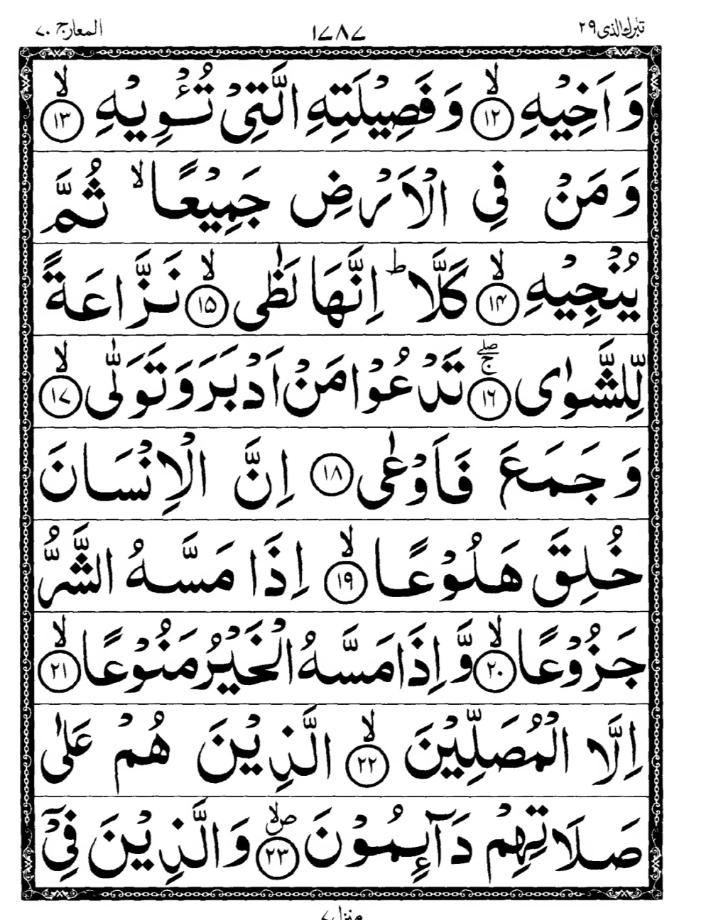 تبٰرك الذی ۲۹ ۱۷۸۷ المعارج ۷۰
وَاَخِيْهِ ۙ﴿۱۲﴾ وَفَصِيْلَتِهِ الَّتِىْ تُــْٔوِيْهِ ۙ﴿۱۳﴾
وَمَنْ فِى الْاَرْضِ جَمِيْعًا ۙ ثُمَّ
يُنْجِيْهِ ۙ﴿۱۴﴾ كَلَّا ؕ اِنَّهَا لَظٰى ۙ﴿۱۵﴾ نَزَّاعَةً
لِّلشَّوٰى ۚۖ﴿۱۶﴾ تَدْعُوْا مَنْ اَدْبَرَ وَتَوَلّٰى ۙ﴿۱۷﴾
وَجَمَعَ فَاَوْعٰى ﴿۱۸﴾ اِنَّ الْاِنْسَانَ
خُلِقَ هَلُوْعًا ۙ﴿۱۹﴾ اِذَا مَسَّهُ الشَّرُّ
جَزُوْعًا ۙ﴿۲۰﴾ وَّاِذَا مَسَّهُ الْخَيْرُ مَنُوْعًا ۙ﴿۲۱﴾
اِلَّا الْمُصَلِّيْنَ ۙ﴿۲۲﴾ الَّذِيْنَ هُمْ عَلٰى
صَلَاتِهِمْ دَآٮِٕمُوْنَ ۪ۙ﴿۲۳﴾ وَالَّذِيْنَ فِىْۤ
منزل ۷